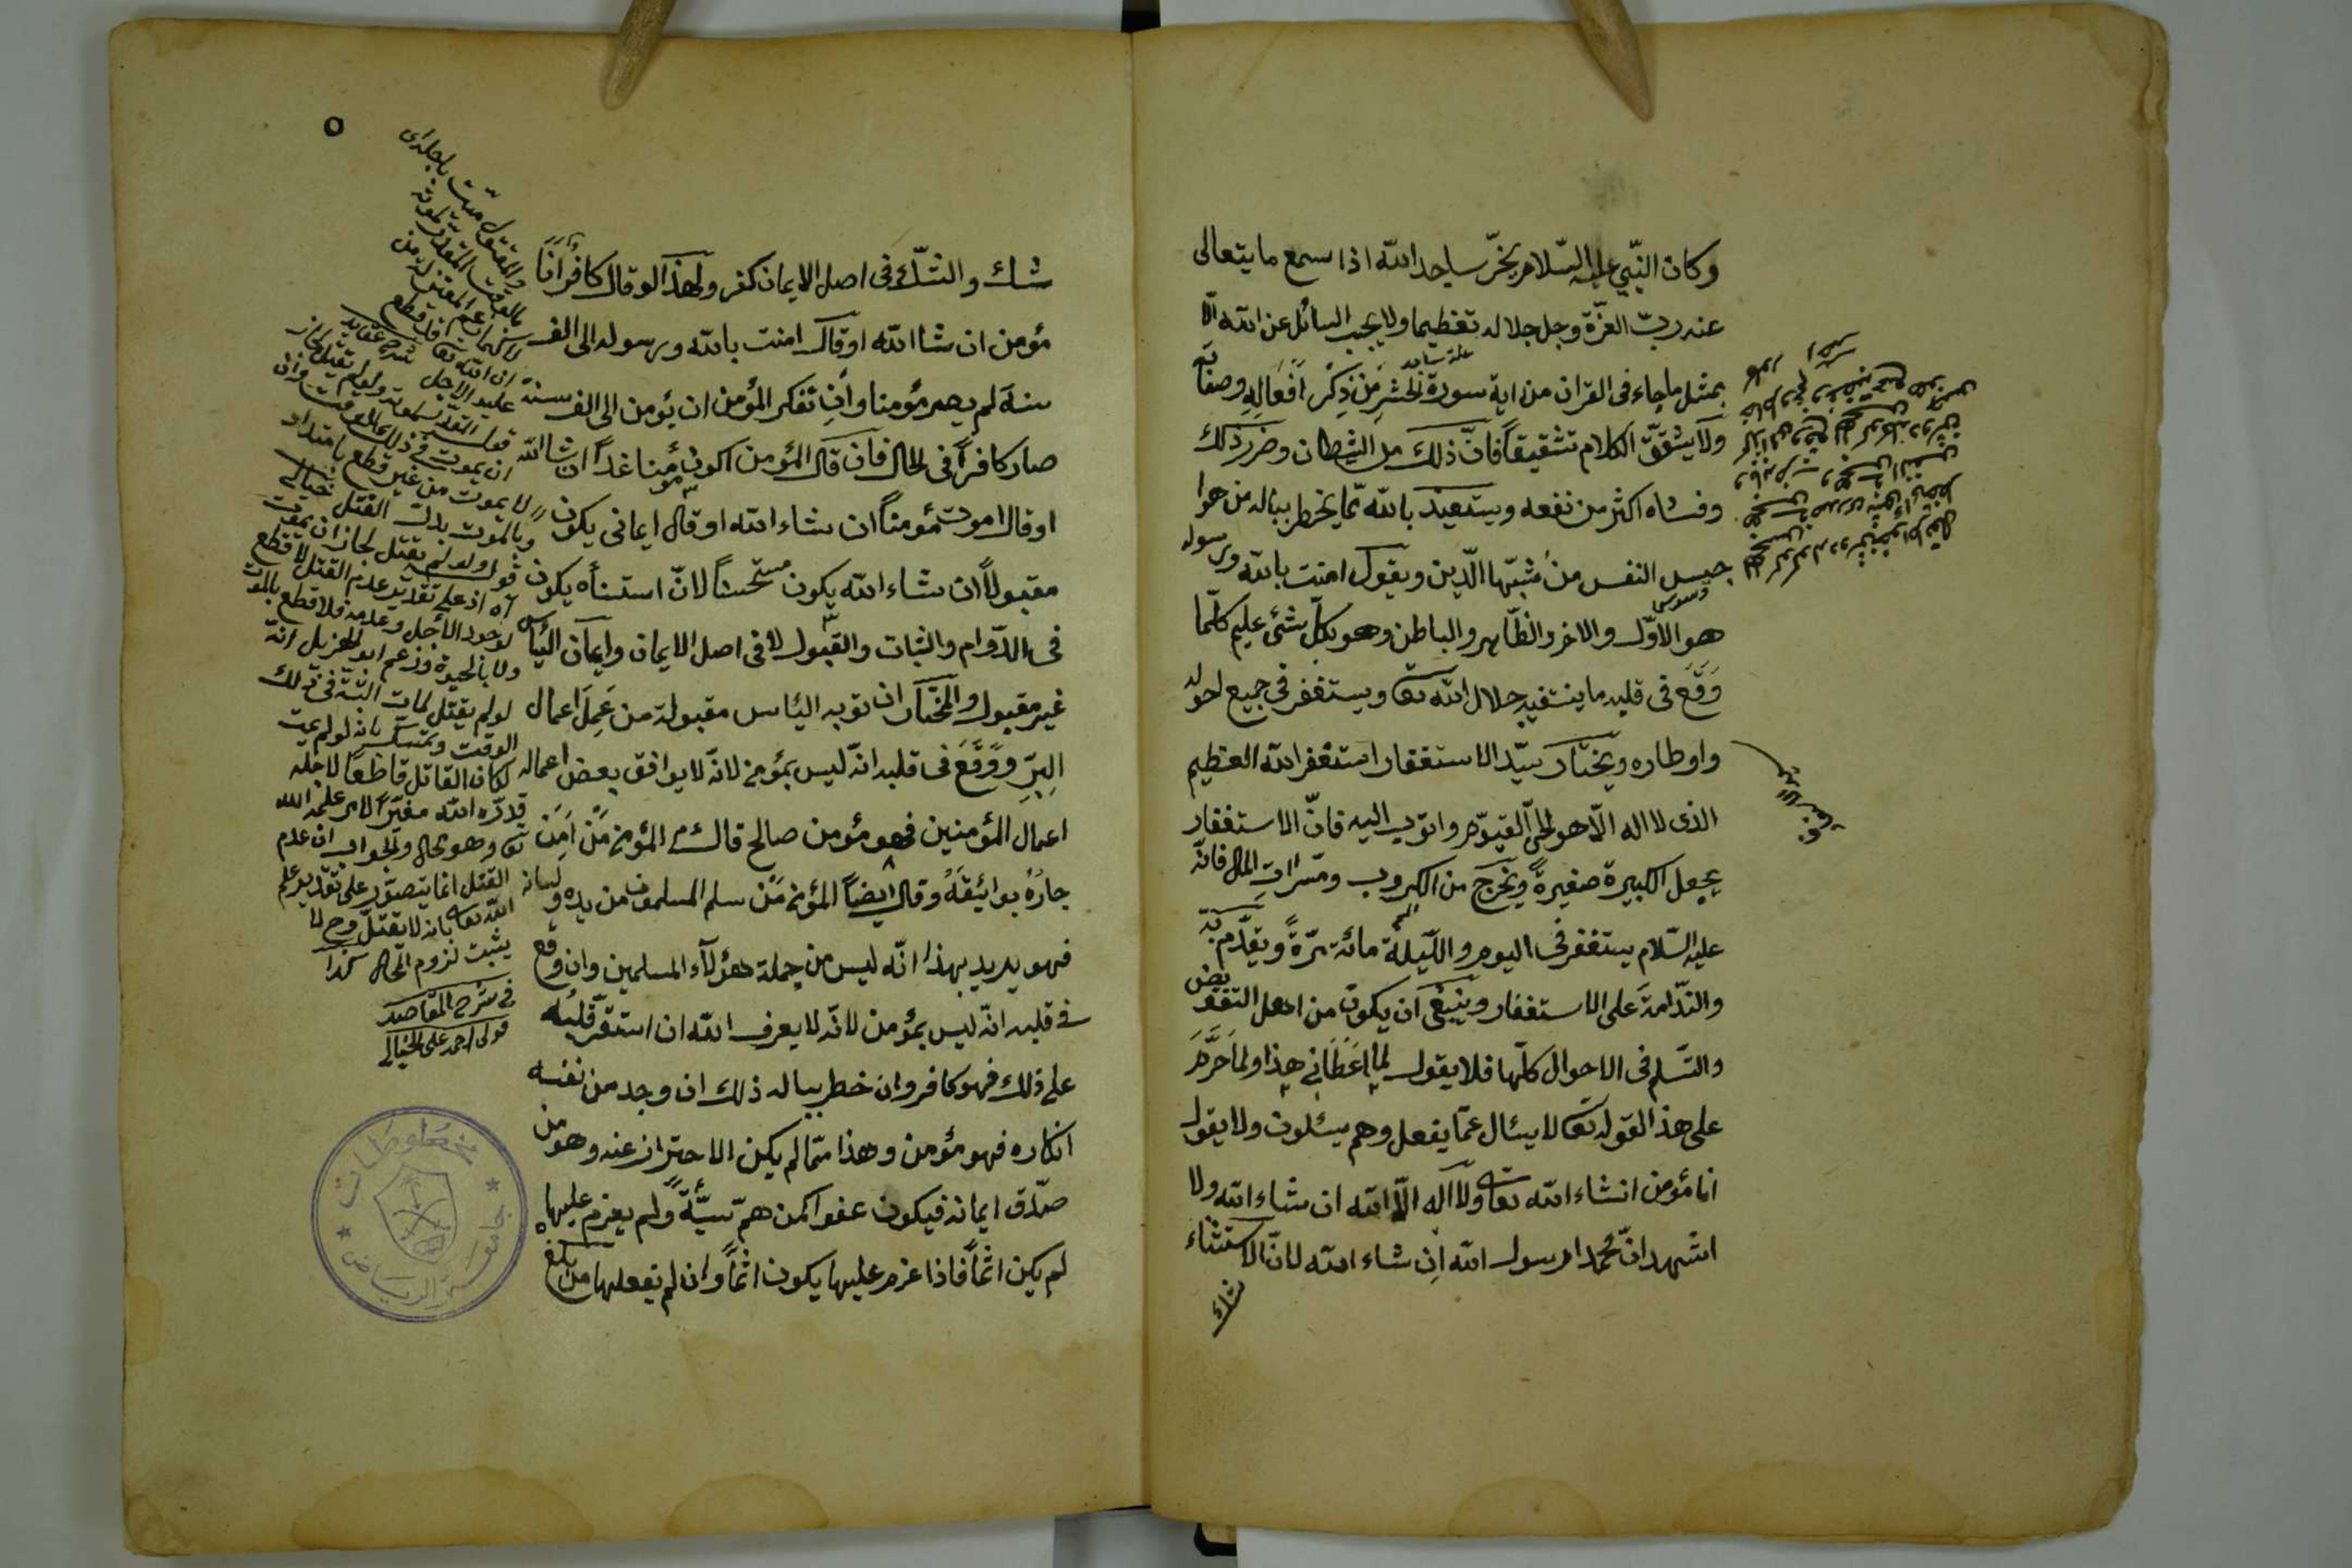 وكان النّبي عليه السّلام يخرّ ساجدا لله اذا سمع ما يتعالى
عنه ربّ العزّة وجل جلاله تعظيما ولا يجيب السائل عن الله الّا
بمثل ما جاء فى القران من اية سورة الحشر من ذِكْر اَفْعَالِهِ وصفاته
ولا يشقّق الكلام تشقيقاً فانّ ذلك من الشيطان وضرر ذلك
وفساه اكثر من نفعه ويستعيذ بالله ممّا يخطر بباله من هوا
جس النفس من مُشبّها الّدين ويقول امنت بالله ورسوله
هو الاوّل والاخر والظّاهر والباطن وهو بكلّ شئ عليم كلّما
وَقَعَ فى قلبه ما ينتفيه جلال الله تعا ويستغفر فى جميع احواله
واوطاره ويختار سيّد الاستغفار استغفر الله العظيم
الذى لا اله الّا هو الحىّ القيّوم واتوب اليه فانّ الاستغفار
يجعل الكبيرة صغيرةً ويَخرج من الكروب ومسرات المال فانّه
عليه السّلام يستغفر فى اليوم والّليلة مائة مرّةً ويقدّم
والنّدامة على الاستغفار وينبغى ان يكون من اهل التفويض
والتّسلم فى الاحوال كلّها فلا يقول لِمَا اَعْطَانى هذا ولِمَا حَرَّمَ
على هذ القوله تعا لا يسئال عمّا يفعل وهم يسئلون ولا يقول
انا مؤمن انشاء الله تعا ولا اله الّا الله ان شاء الله ولا
اشهد انّ محمدا رسول الله اِن شاء الله لانّ الاستثناء
شك
٥
شك والشّك فى اصل الايمان كفر ولهذا لو قال كافر انا
مؤمن ان شا الله او قال امنت بالله ورسوله الى الف
سنة لم يصر مؤمنا وانِ تفكر المؤمن ان يؤمن الى الف سنة
صار كافراً فى الحال فان قال المؤمن اكون مؤمنا غداً ان شا الله
او قال اموت مؤمناً ان شاء الله او قال ايمانى يكون
مقبولاً ان شاء الله يكون مستحسناً لانّ استثناه يكون
فى الدّوام والثبات والقبول لا فى اصل الايمان وايمان اليأس
غير مقبول والمختار ان توبه اليئاس مقبولة من عَمِلَ اعمال
البِرّ ووَقَعَ فى قلبه انّه ليس بمؤمن لانّه لا يوافق بعض اعماله
اعمال المؤمنين فهو مؤمن صالح قال المؤمن مَنْ اَمِنَ
جارُهُ بوائقَهُ وقال ايضاً المؤمن مَنْ سلم المسلمون من يده ولسانه
فهو يريد بهذا انّه ليس من جملة هؤلاء المسلمين وان وقع
فى قلبه انّه ليس بمؤمن لانّه لا يعرف الله ان استقرّ قلبُه
على ذلك فهو كافر وان خطر بباله ذلك ان وجد من نفسه
انكاره فهو مؤمن وهذا ممّا لم يكن الاحتراز عنه وهو من
صدّق ايمانه فيكون عفوا كمن همّ سيّئةً ولم يعزم عليها
لم يكن اثماً فاذا عزم عليها يكون اثماً وان لم يفعلها من بلغ
والمقتول ميّت باجله اى
بالوقت المقدّر لموته
لا كما زعم المعتزلة من
ان الله تعا قد قطع
عليه الاجل شرح عقايد
ان يموت فى ذلك الوقت وان
لا يموت من غير قطع بامتداد
وبالموت بدل القتل خيالى
قوله ولو لم يقتل لجاز ان يموت
آه اذ على تقدير عدم القتل لا قطع
لوجود الاجل وعدمه فلا قطع بالموت
ولا بالحيوة وزعم ابو الهزيل انّه
لو لم يقتل لمات البتّة فى ذلك
الوقت وتمسّك بانه لو لم يمت
لكان القاتل قاطعاً لاجله
قدّره الله مغيّرا لامر علمه الله
تعا وهو محال والجواب ان عدم
القتل انما يتصوّر على تقدير علم
الله تعا بانه لا يقتل وح لا
يثبت لزوم المحال كذا
فى شرح المقاصد
قولى احمد على الخيالى
مخطوطات
جامعة الرياض